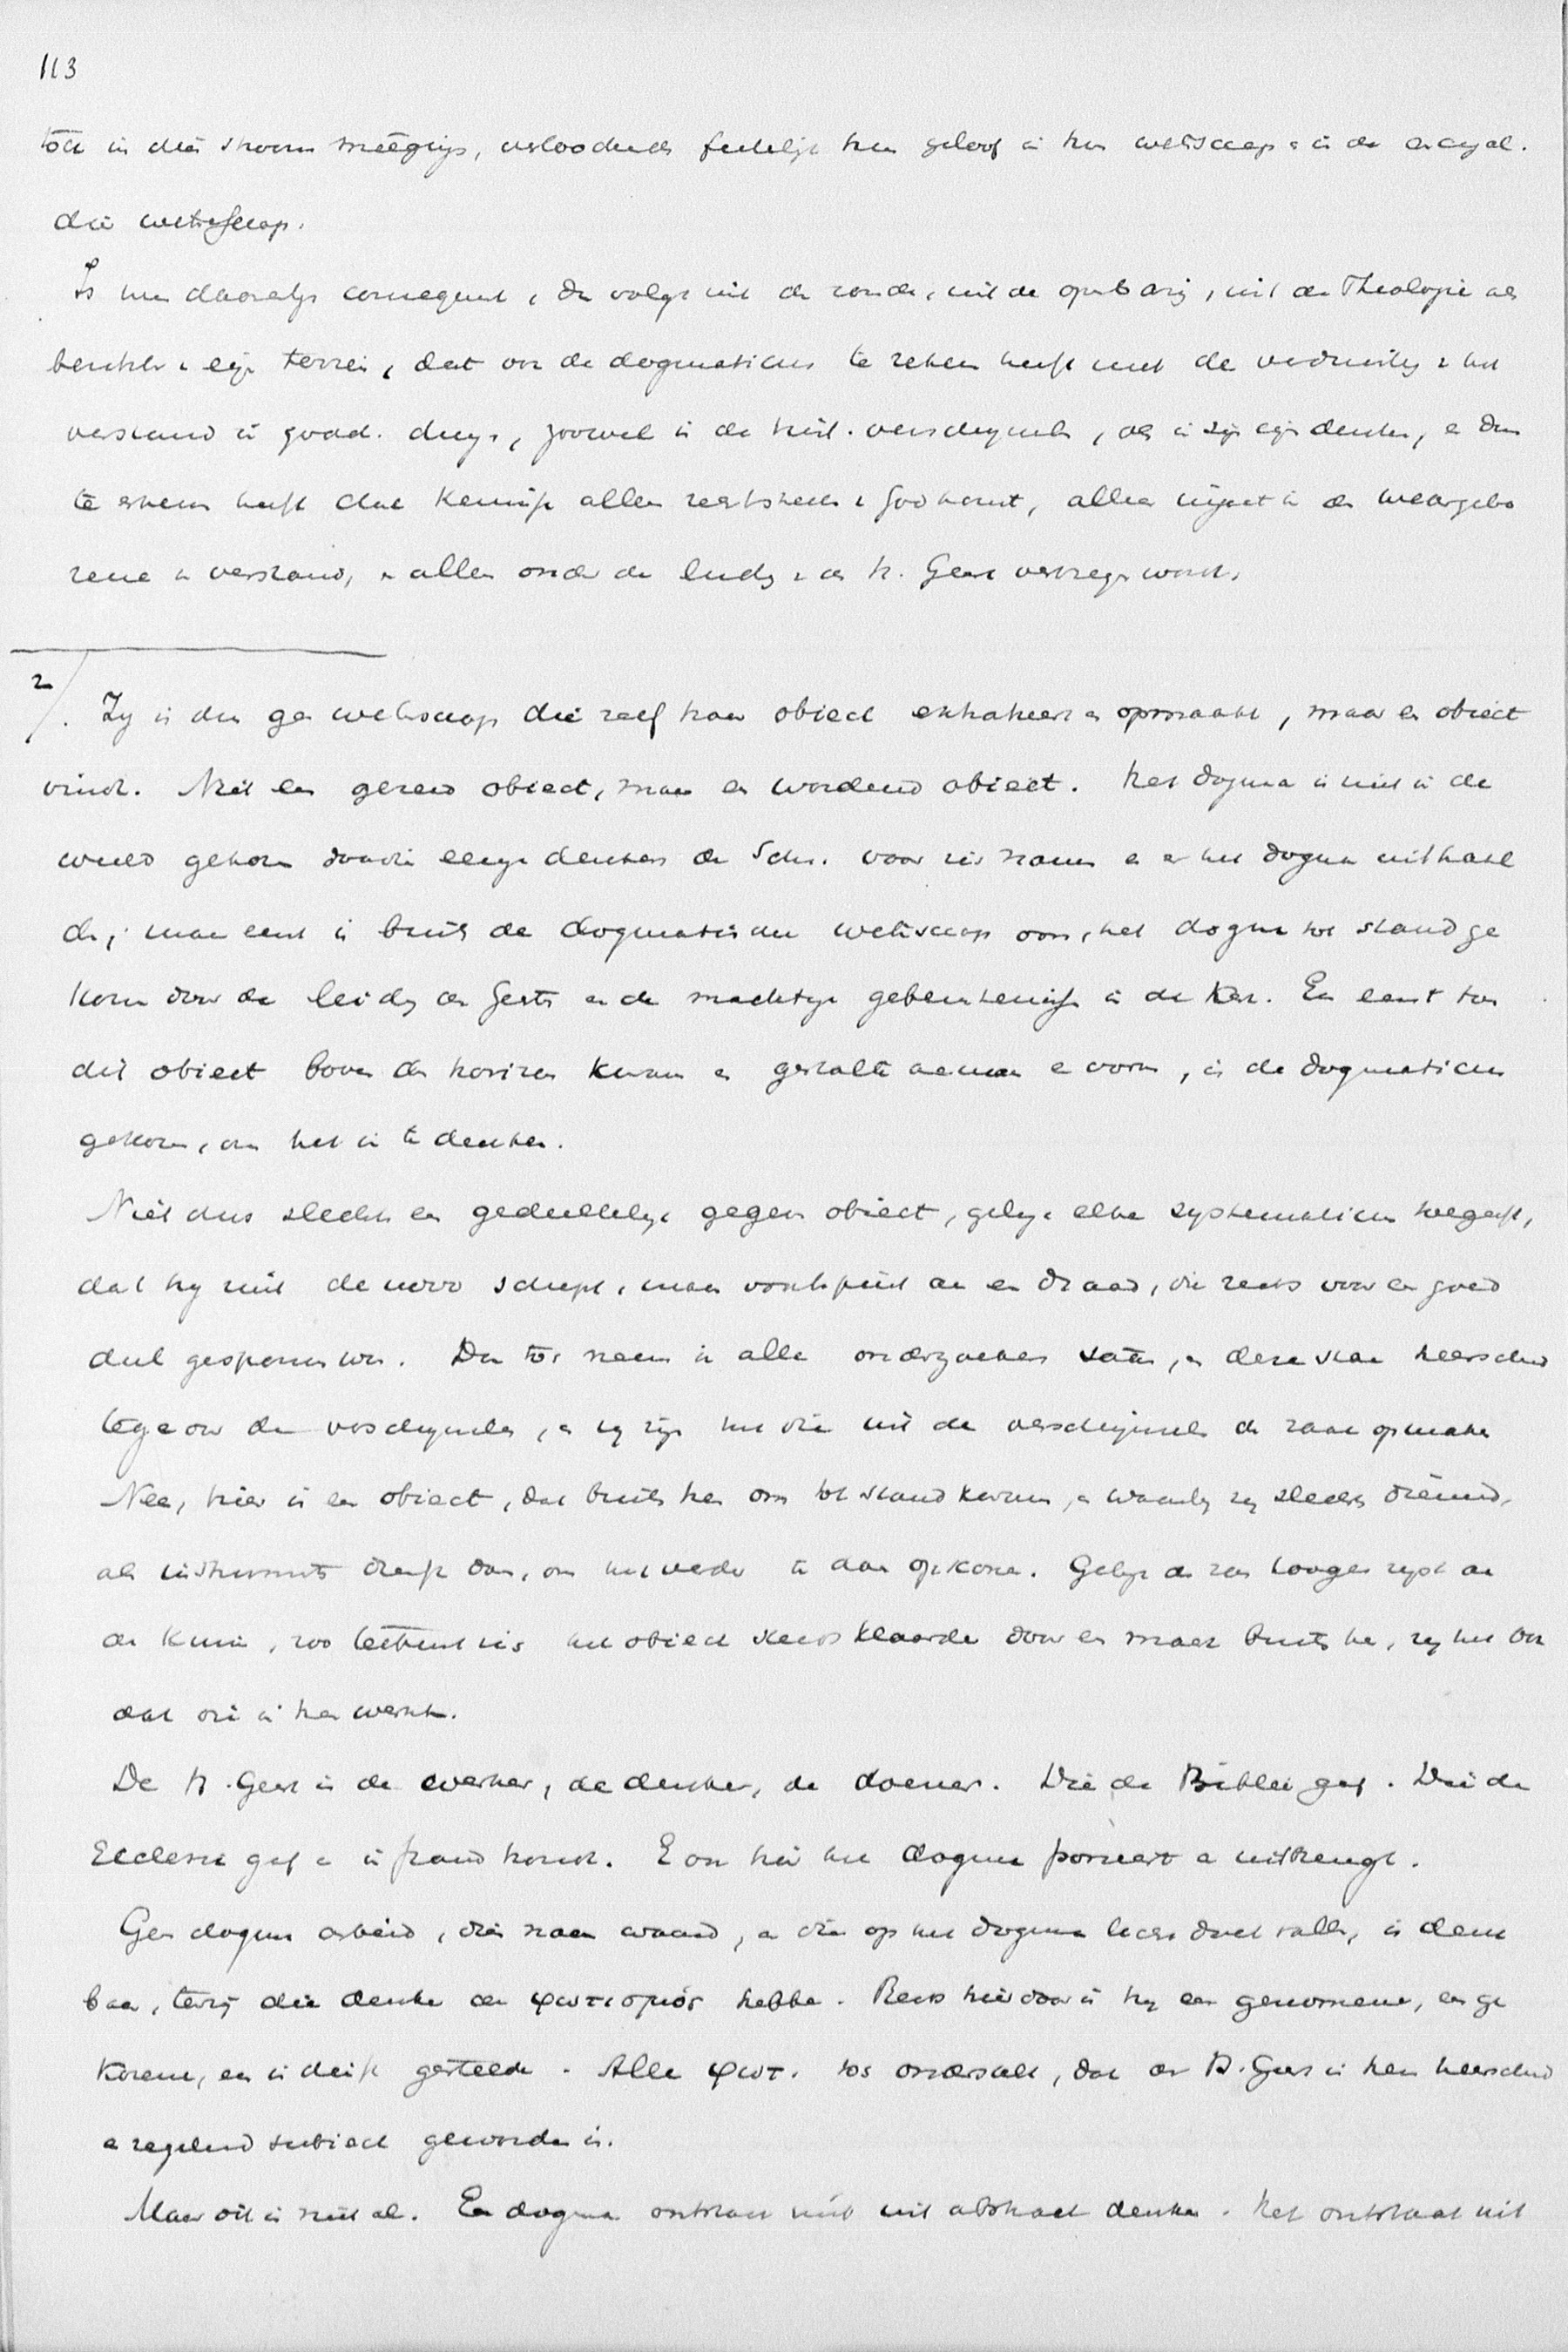 113
toch in dien stroom meêgrijp, verloochende feitelijk hun geloof in hun wetenschap en in de
die wetenschap.
Is men daarentegen consequent, dan volgt uit de zonde, uit de openbaring, uit de Theologie als
eigen terrein, dat ook de dogmaticus te rekenen heeft met de verduistering v het
verstand in godd. dingen, zoowel in de hist. verschijnselen, als in zijn eigen denken, en dus
te erkennen heeft dat kennisse alleen rechtstreeks v God komt, alleen ingaat in de wedergebo
rene in verstand, en alleen onder de leiding v de H. Geest verkregen wordt.
2/. Zy is dus geen wetenschap die zelf haar object en opmaakt, maar en object
vindt. Niet een gereed object, maar en wordend object. Het dogma is niet in de
wereld gekomen doordien eenige denkers de Schr. voor zich namen en er het dogma uithaal
den; maar eeuw in buiten de dogmatische wetenschap om, het dogma tot stand ge
komen door de leiding des Geestes en de machtige gebeurtenissen in de Kerk. En eerst toen
dit object boven de horizon kwam en gestalte aannam en vorm, is de dogmaticus
gekomen, om het in te denken.
Niet dus slechts en gedeeltelijk gegeven object, gelijk elke systematicus toegeeft,
dat hij niet de novo schept, maar voortspint aan en draad, die reeds voor en goed
deel gesponnen was. Dan toch neemt in alle onderzoeker saam, en deze staan heerschend
tegenover de verschijnselen, en zij zijn het die uit de verschijnselen de zaak opmaken
Nee, hier is een object, dat buiten hen om tot stand kwam, en waarbij zij slechts dienend,
als instrumenten dienst doen, om het verder te doen opkomen. Gelijk de zon hooger rijst aan
de kim, zoo teekent zich het object steeds klaarder door en macht buiten hen, zij het ook
dat die in hen werkt.
De H. Geest is de werker, de denker, de doener. Die de Biblia gaf. Die de
Ecclesia gaf en in stand houdt. En ook hier het dogma formeert en uitbrengt.
Geen dogma arbeid, dien naam waard, en die op het dogma licht doet vallen, is denk
baar, tenzij die denker den φωτισμός hebbe. Reeds hierdoor is hij een genomene, een ge
korene, en in dienst gestelde. Alle φωτ. toch onderstelt, dat de H. Geest in hem heerschend
en regelend subiect geworden is.
Maar dit is niet al. Een dogma ontstaat niet uit abstract denken. Het ontstaat uit